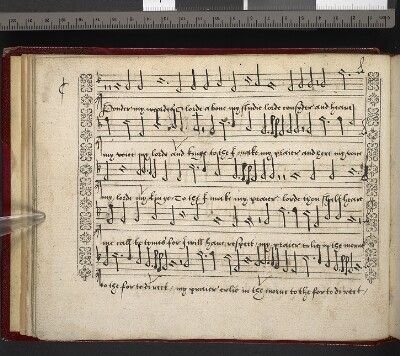 Ponder my wordes O lorde above my studie lorde consyder and heare
my voice my lorde and kinge to the I make my praier and here my voice
my lorde my kinge To the I make my praier lorde thou shalt heare
me call be tymes for I will have respect / my praier erlie in the morne
to the for to direct / my praier erlie in the morne to the for to direct /